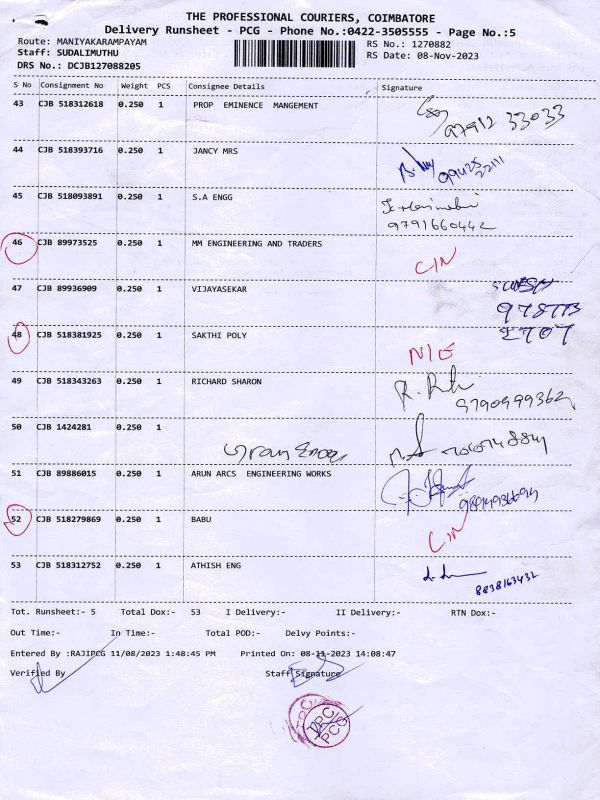 THE PROFESSIONAL COURIERS, COIMBATORE
Delivery Runsheet - PCG - Phone No.:0422-3505555 - Page No.:5
Route: MANIYAKARAMPAYAM RS No.: 1270882
Staff: SUDALIMUTHU RS Date: 08-Nov-2023
DRS No.: DCJB127088205
S No Consignment No Weight PCS Consignee Details Signature
43 CJB 518312618 0.250 1 PROP EMINENCE MANGEMENT
97912 33033
44 CJB 518393716 0.250 1 JANCY MRS
99425
22111
45 CJB 518093891 0.250 1 S.A ENGG
9791660442
46 CJB 89973525 0.250 1 MM ENGINEERING AND TRADERS
C/N
47 CJB 89936909 0.250 1 VIJAYASEKAR
48 CJB 518381925 0.250 1 SAKTHI POLY
2707
N/G
49 CJB 518343263 0.250 1 RICHARD SHARON
50 CJB 1424281 0.250 1
51 CJB 89886015 0.250 1 ARUN ARCS ENGINEERING WORKS
52 CJB 518279869 0.250 1 BABU
C/N
53 CJB 518312752 0.250 1 ATHISH ENG
8838163432
Tot. Runsheet:- 5 Total Dox:- 53 I Delivery:- II Delivery:- RTN Dox:-
Out Time:- In Time:- Total POD:- Delvy Points:-
Entered By :RAJIPCG 11/08/2023 1:48:45 PM Printed On: 08-11-2023 14:08:47
Verified By Staff Signature
TPC
PCG